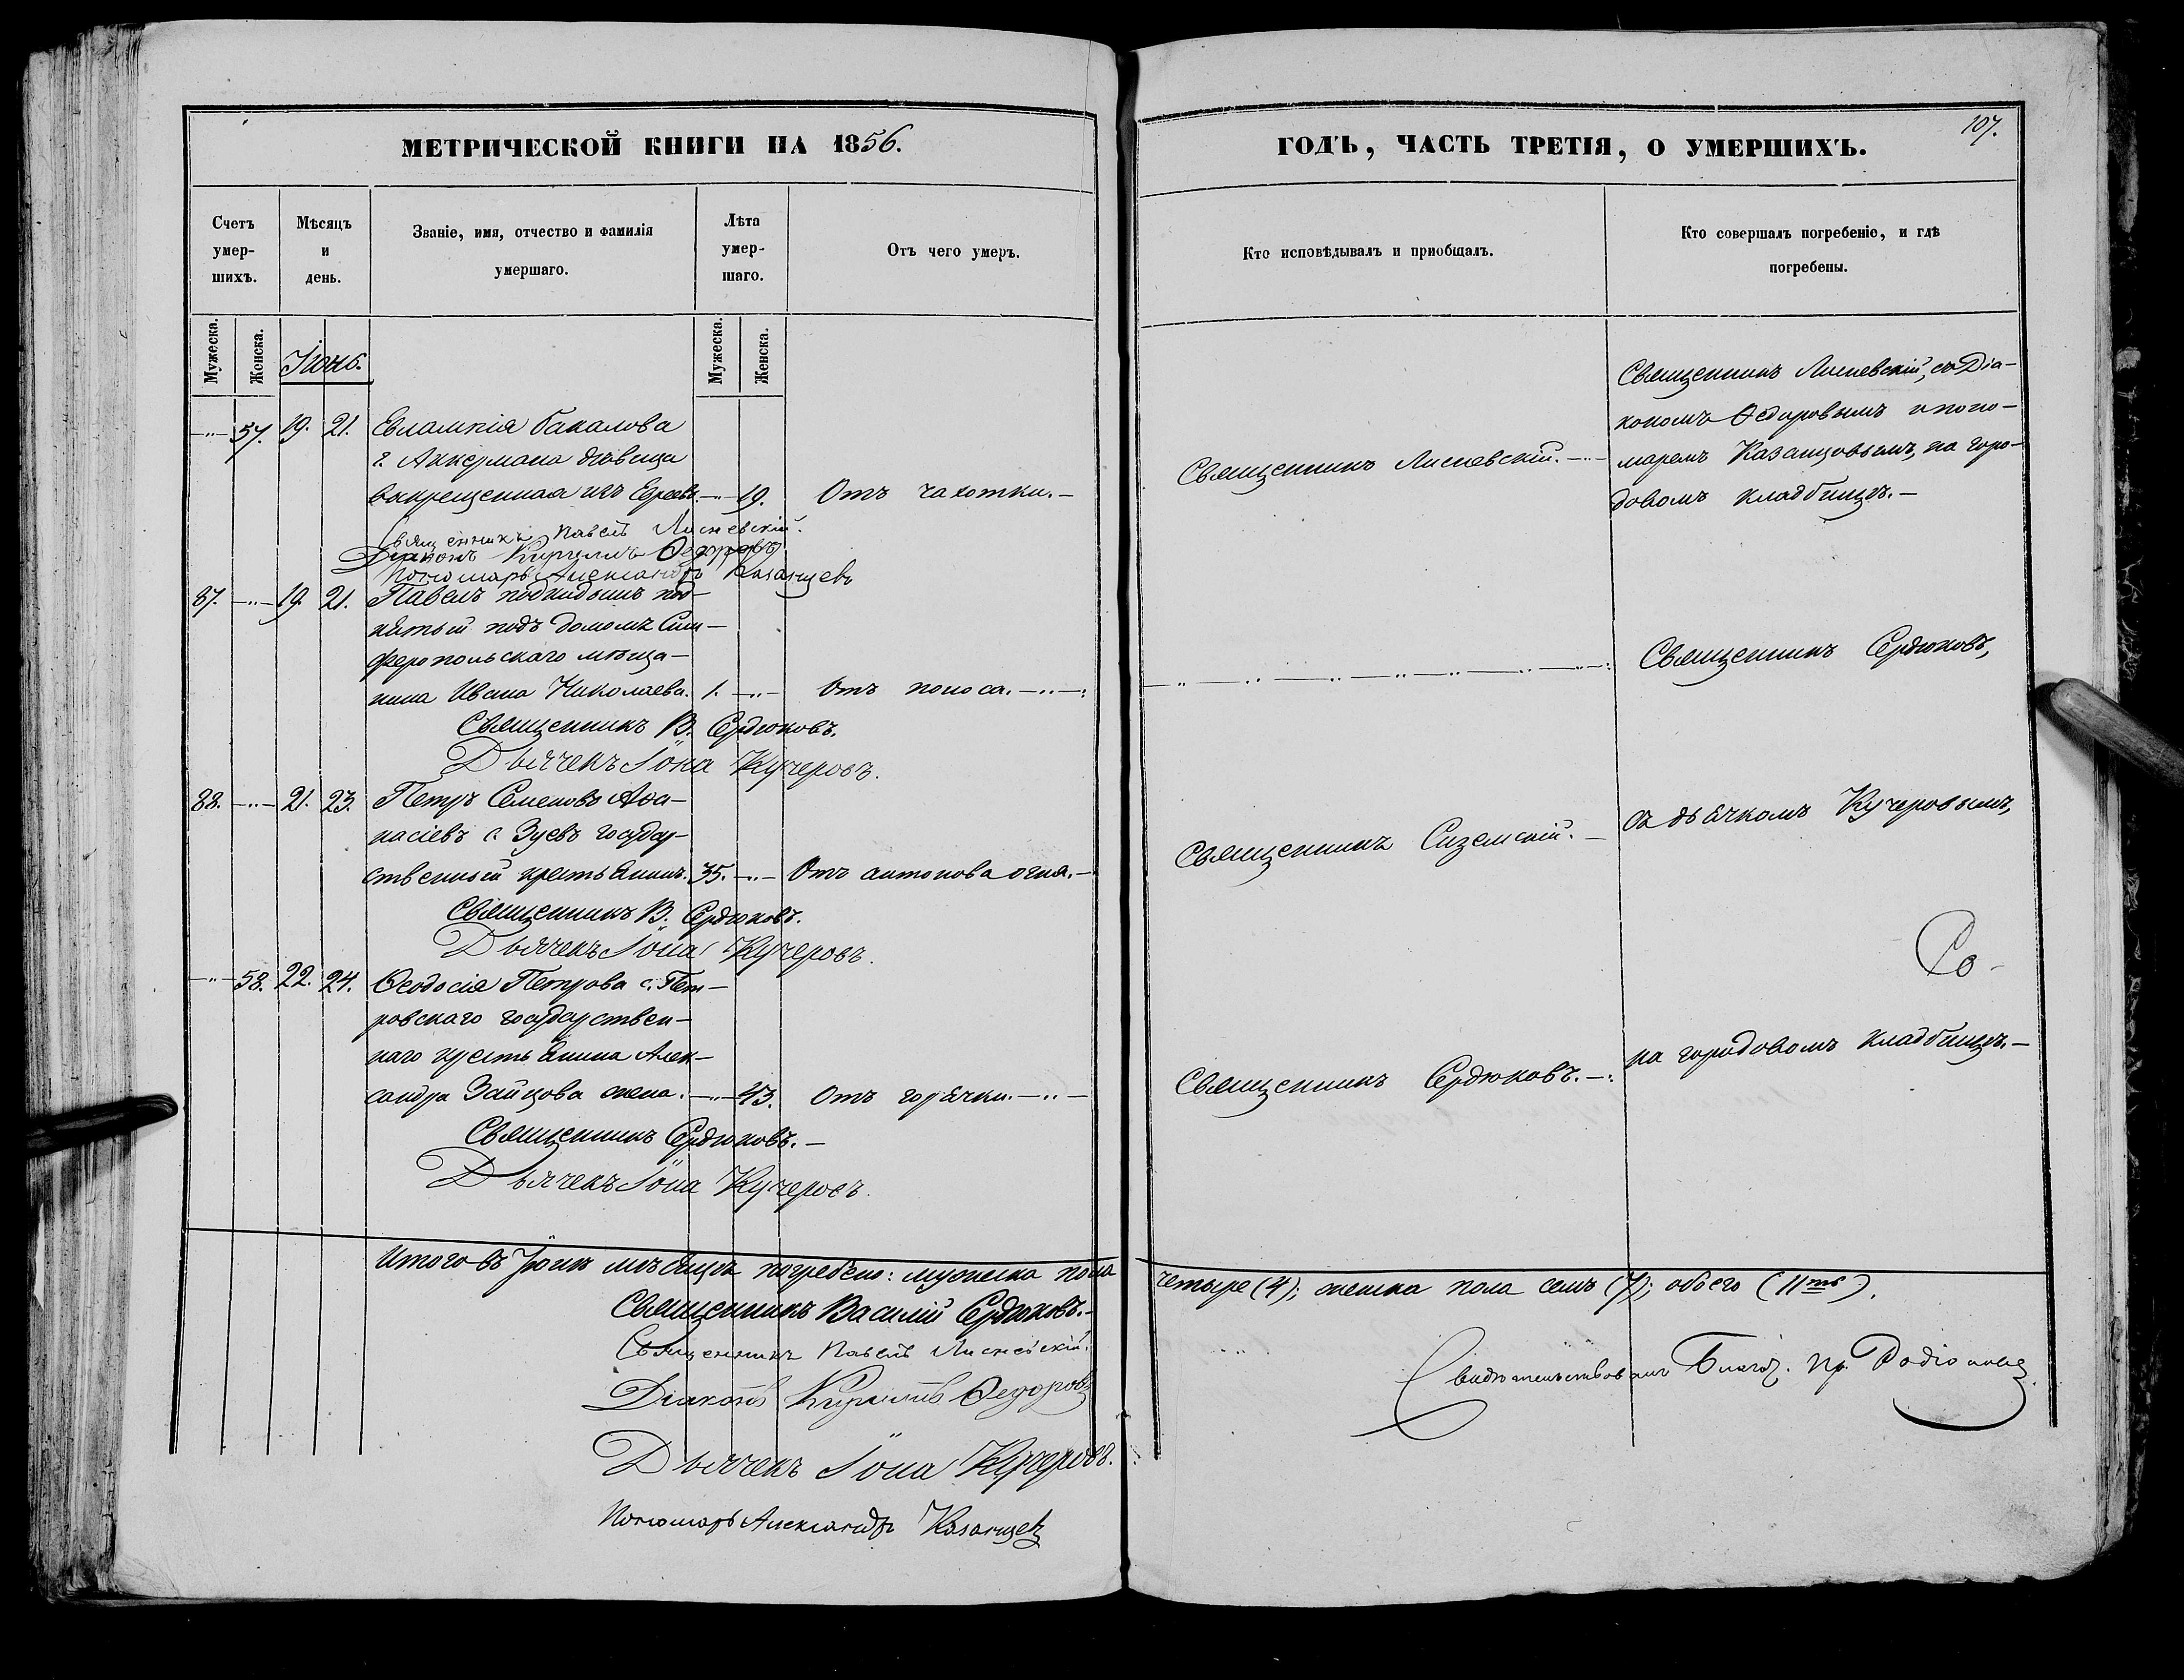 МЕТРИЧЕСКОЙ КНИГИ НА 1856.
Счетъ умер-шихъ.
Мѣсяцъ и день.
Званіе, имя, отчество и фамилія умершаго.
Лѣта умер-шаго.
Отъ чего умеръ.
Мужеска.
Женска.
Іюнь.
Мужеска.
Женска.
57. 19. 21. Евлампія Бакалова
г. Аккермана дѣвица
вокрещенная изъ Евреевъ. 19. Отъ чахотки.
Священникъ Павелъ Лисневскій.
Діаконъ Кириллъ Ѳедоровъ
Пономарь Александръ Казанцевъ
87. 19. 21. Павелъ подкидышъ под-
нятый подъ домомъ Сим-
феропольскаго мѣща-
нина Ивана Николаева. 1. Отъ поноса.
Священникъ В. Сердюковъ.
Дьячекъ Іона Кучеровъ.
88. 21. 23. Петръ Семеновъ Аѳа-
насіевъ с. Зуевъ государ-
ственный крестьянинъ. 35. Отъ антонова огня.
Священникъ В. Сердюковъ.
Дьячекъ Іона Кучеровъ.
58. 22. 24. Ѳеодосія Петрова с. Пет-
ровскаго государствен-
наго крестьянина Алек-
сандра Зайцова жена. 43. Отъ горячки.
Священникъ Сердюковъ.
Дьячекъ Іона Кучеровъ.
Итого въ Іюнѣ мѣсяцѣ погребено: мужеска пола
Священникъ Василій Сердюковъ.
Священникъ Павелъ Лисневскій.
Діаконъ Кириллъ Ѳедоровъ
Дьячекъ Іона Кучеровъ.
Пономарь Александръ Казанцевъ
107.
ГОДЪ, ЧАСТЬ ТРЕТІЯ, О УМЕРШИХЪ.
Кто исповѣдывалъ и пріобщалъ.
Кто совершалъ погребеніе, и гдѣ погребены.
Священникъ Лисневскій, съ Діа-
кономъ Ѳедоровымъ и поно-
Священникъ Лисневскій. маремъ Казанцовымъ, на горо-
довомъ кладбищѣ.
Священникъ Сердюковъ,
Священникъ Сиземскій. съ дьячкомъ Кучеровымъ,
Ро-
Священникъ Сердюковъ. на городовомъ кладбищѣ.
четыре (4); женска пола семь (7); обоего (11ть).
Свидѣтельствовалъ Благоч. Пр. Родіоновъ